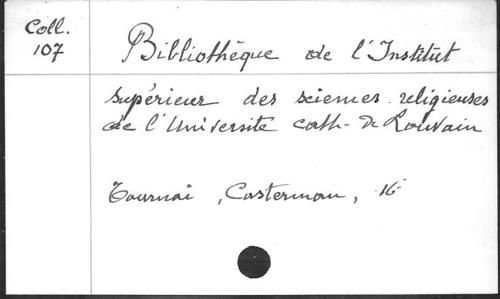 Coll.
107
Bibliothèque de l'Institut
supérieur des sciences religieuses
de l'Université cath. de Louvain
Tournai, Casterman, 16